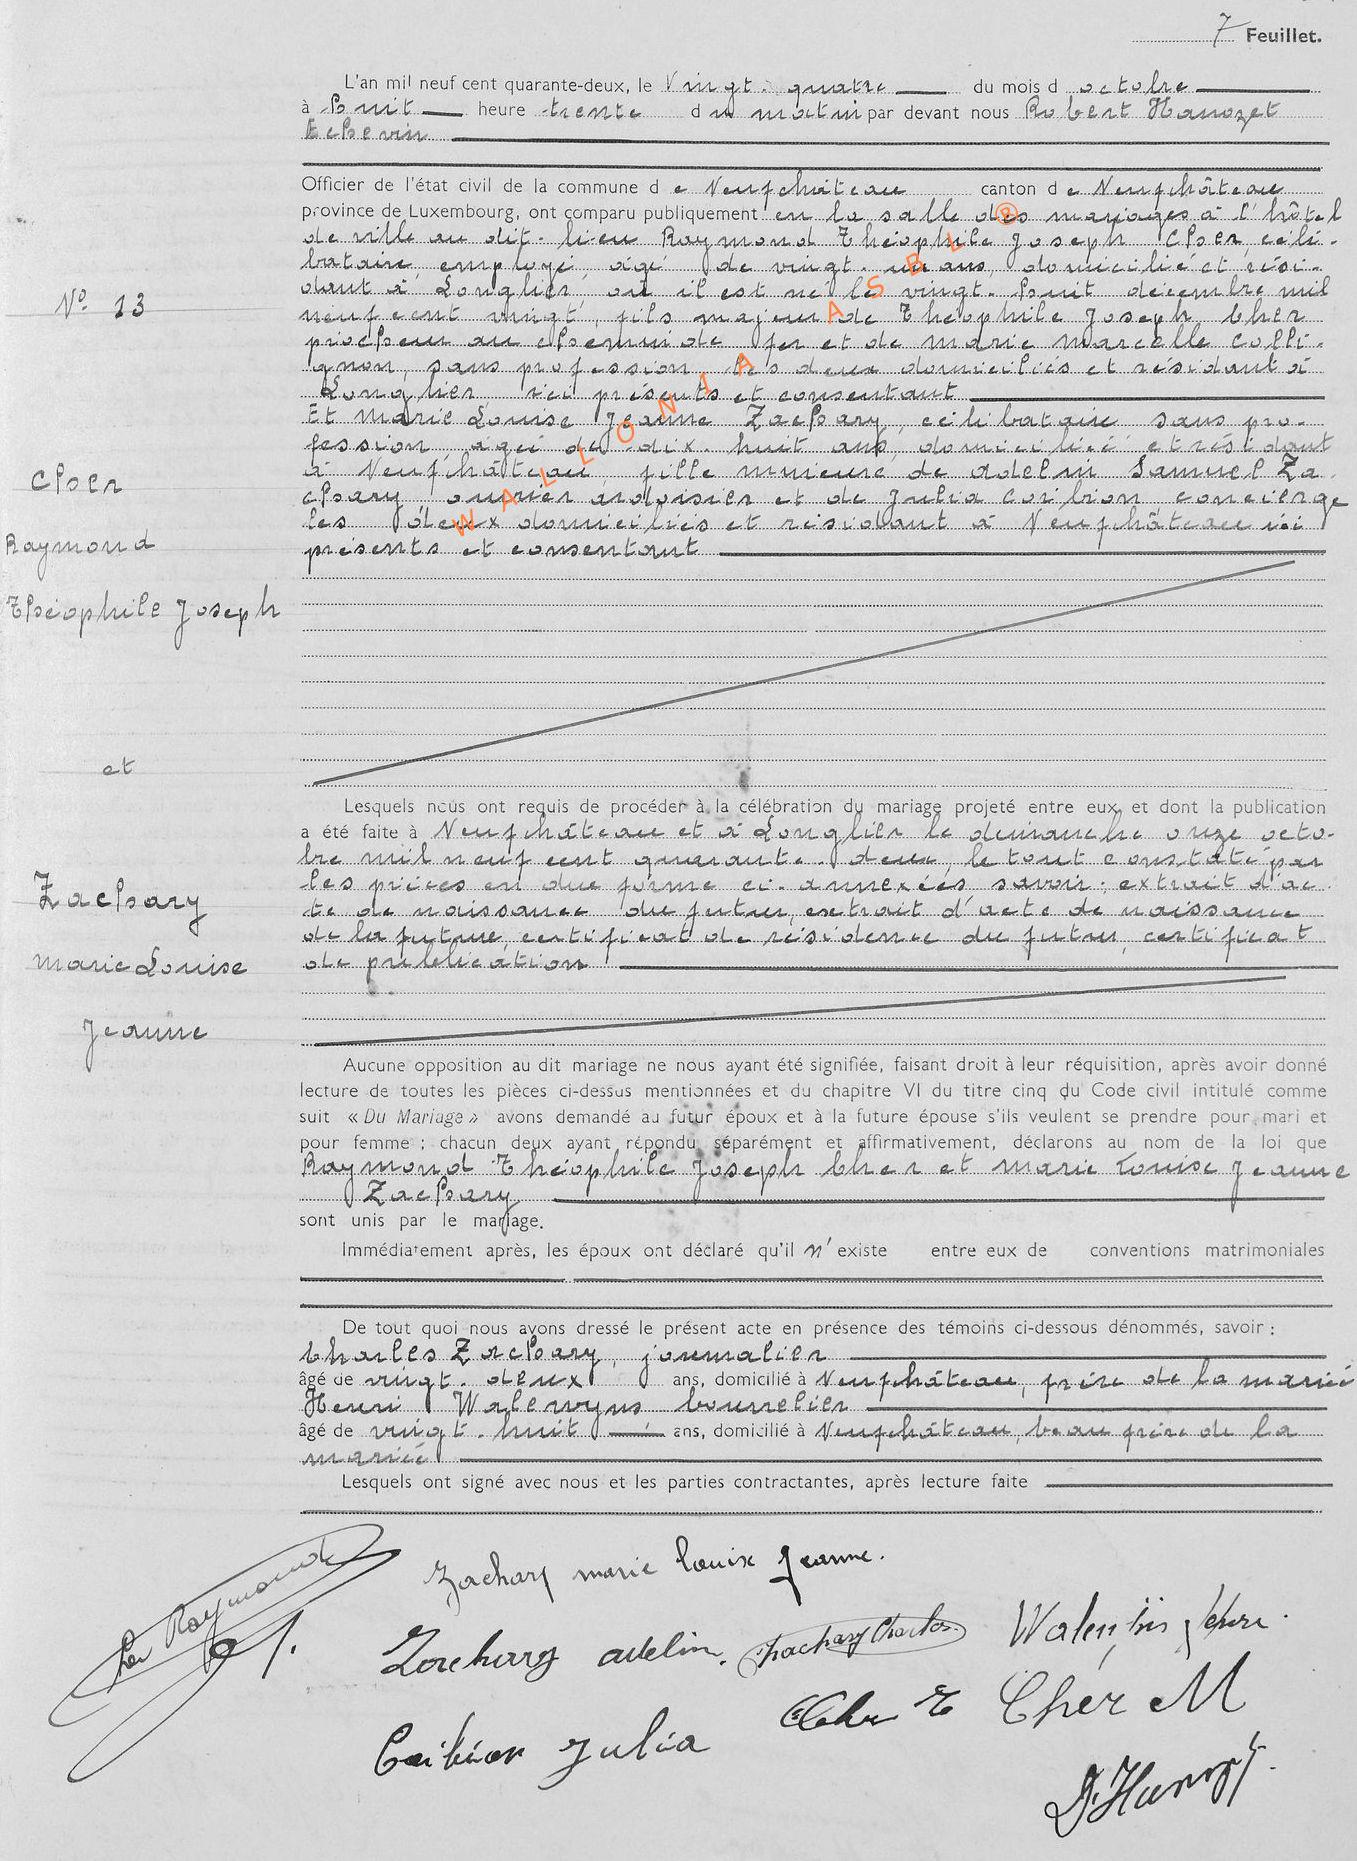 7 Feuillet.
L'an mil neuf cent quarante-deux, le Vingt-quatre du mois d octobre
à huit heure trente du matin par devant nous Robert Hanozet
Echevin
Officier de l'état civil de la commune d e Neufchâteau canton d e Neufchâteau
province de Luxembourg, ont comparu publiquement en la salle des mariages à l'hôtel
de ville au dit-lieu Raymond Théophile Joseph Cher céli-
bataire, employé, âgé de vingt-un ans, domicilié et rési-
dant à Longlier, où il est né le vingt-huit décembre mil
neuf cent vingt, fils majeur de Théophile Joseph Cher
piocheur au chemin de fer et de Marie Marcelle Colli-
gnon, sans profession, les deux domiciliés et résidant à
Longlier ici présents et consentant
Et Marie Louise Jeanne Zachary, célibataire sans pro-
fession âgée de dix-huit ans, domiciliée et résidant
à Neufchâteau, fille mineure de Adelin Samuel Za-
chary ouvrier ardoisier et de Julia Caribion concierge
les deux domiciliés et résidant à Neufchâteau ici
présents et consentant
No 13
Cher
Raymond
Théophile Joseph
et
Zachary
Marie Louise
Jeanne
Lesquels nous ont requis de procéder à la célébration du mariage projeté entre eux et dont la publication
a été faite à Neufchâteau et à Longlier le dimanche onze octo-
bre mil neuf cent quarante-deux, le tout constaté par
les pièces en due forme ci-annexées savoir: extrait d'ac-
te de naissance du futur, extrait d'acte de naissance
de la future, certificat de résidence du futur, certificat
de publication
Aucune opposition au dit mariage ne nous ayant été signifiée, faisant droit à leur réquisition, après avoir donné
lecture de toutes les pièces ci-dessus mentionnées et du chapitre VI du titre cinq du Code civil intitulé comme
suit « Du Mariage » avons demandé au futur époux et à la future épouse s'ils veulent se prendre pour mari et
pour femme ; chacun deux ayant répondu séparément et affirmativement, déclarons au nom de la loi que
Raymond Théophile Joseph Cher et Marie Louise Jeanne
Zachary
sont unis par le mariage.
Immédiatement après, les époux ont déclaré qu'il n'existe entre eux de conventions matrimoniales
De tout quoi nous avons dressé le présent acte en présence des témoins ci-dessous dénommés, savoir :
Charles Zachary, journalier
âgé de vingt-deux ans, domicilié à Neufchâteau, frère de la mariée
Henri Walewyns bourrelier
âgé de vingt-huit ans, domicilié à Neufchâteau, beau frère de la
mariée
Lesquels ont signé avec nous et les parties contractantes, après lecture faite
Cher Raymond
Zachary marie louise Jeanne.
Zachary adelin. Zachary Charles
Julia
Cher T Cher M
R. Hanozet
WALLONIA ASBL ®